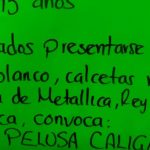 15 años
ados presentarse
blanco, calcetas
de Metallica, Rey
ca, convoca:
PELOSA CALIGA